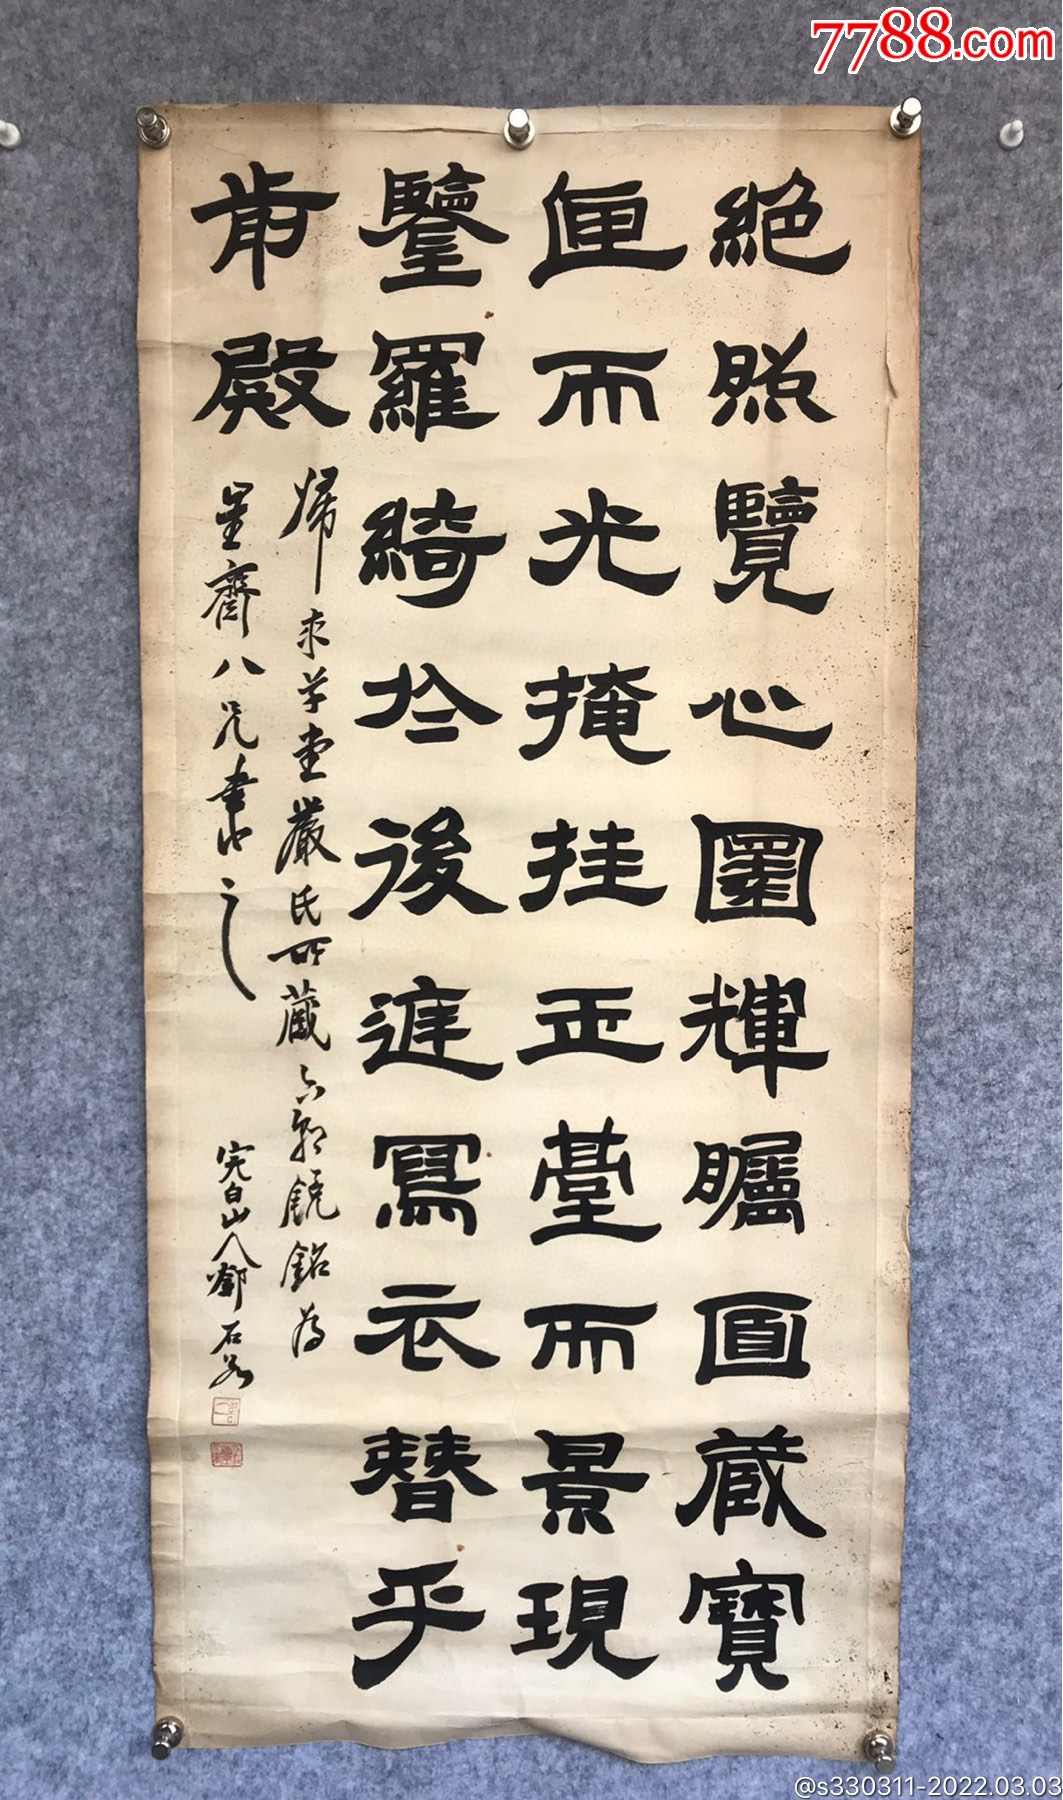 7788.com
絕照覽心圓輝矚面藏寶
匣而光掩挂玉臺而景現
鑒羅綺於後庭寫衣簪乎
前殿
歸求草堂嚴氏所藏六朝鏡銘為
星齋八兄書之
完白山人鄧石如
@s330311-2022.03.03